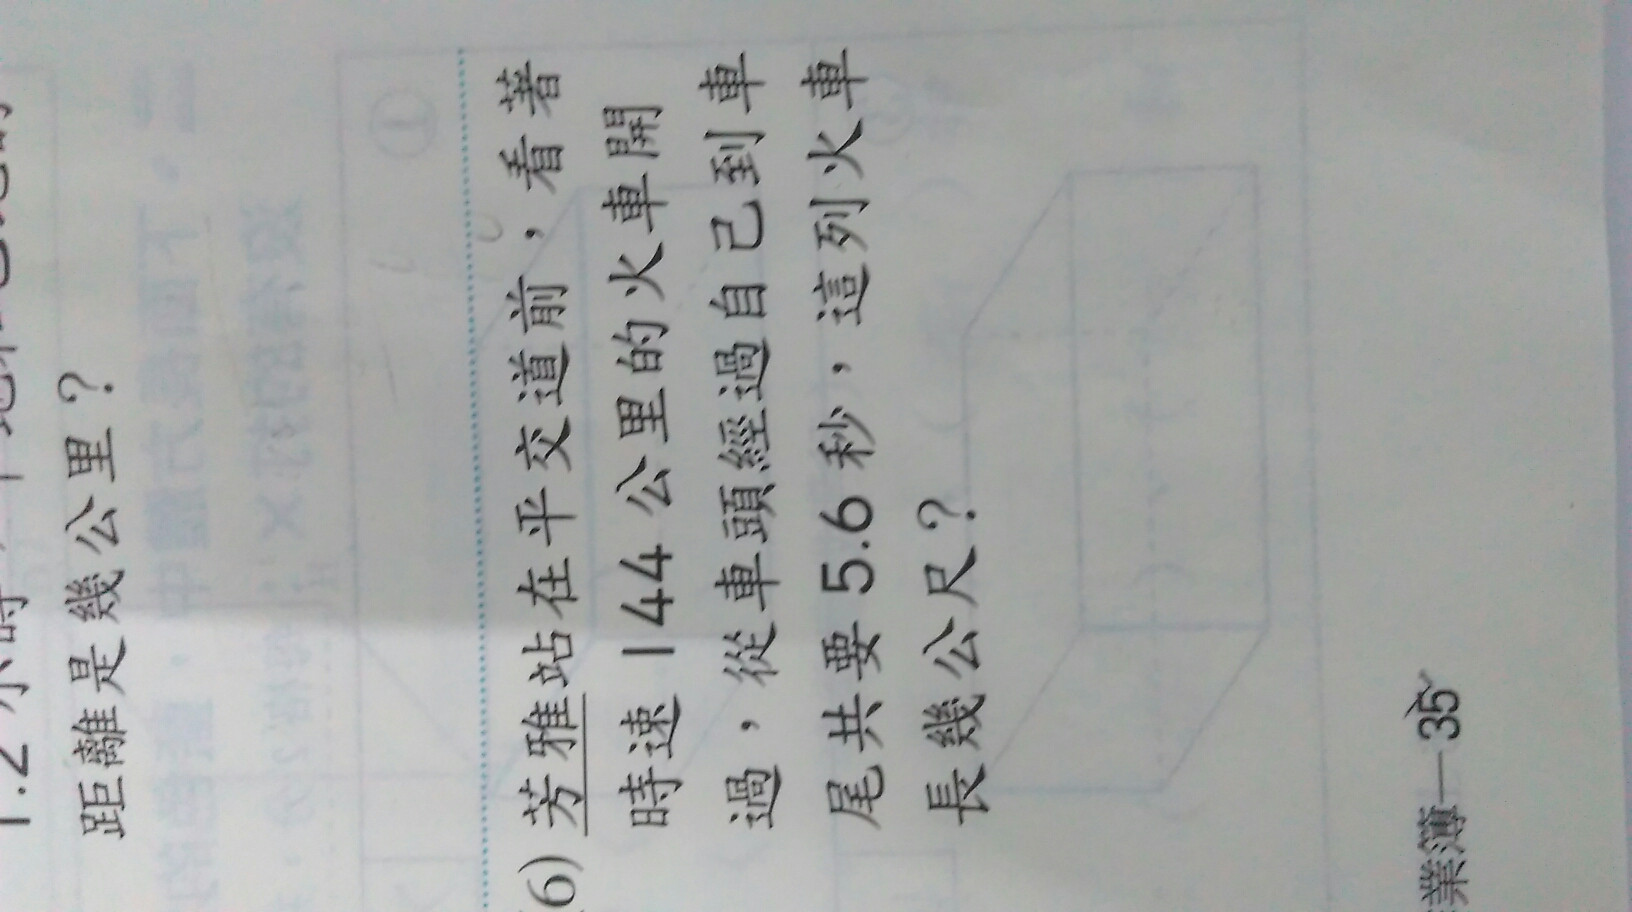 距離是幾公里？
(6) 芳雅站在平交道前，看著
時速 144 公里的火車開
過，從車頭經過自己到車
尾共要 5.6 秒，這列火車
長幾公尺？
業簿—35